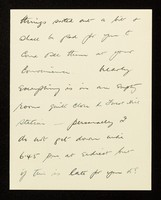 things sorted out a bit &
shall be glad for you to
come see them at your
convenience nearly
everything is in an empty
room quite close to Town
station — personally I
do not get down until
6.45 pm at earliest but
if this is late for you I'll